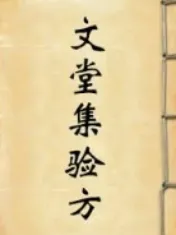 文堂集验方